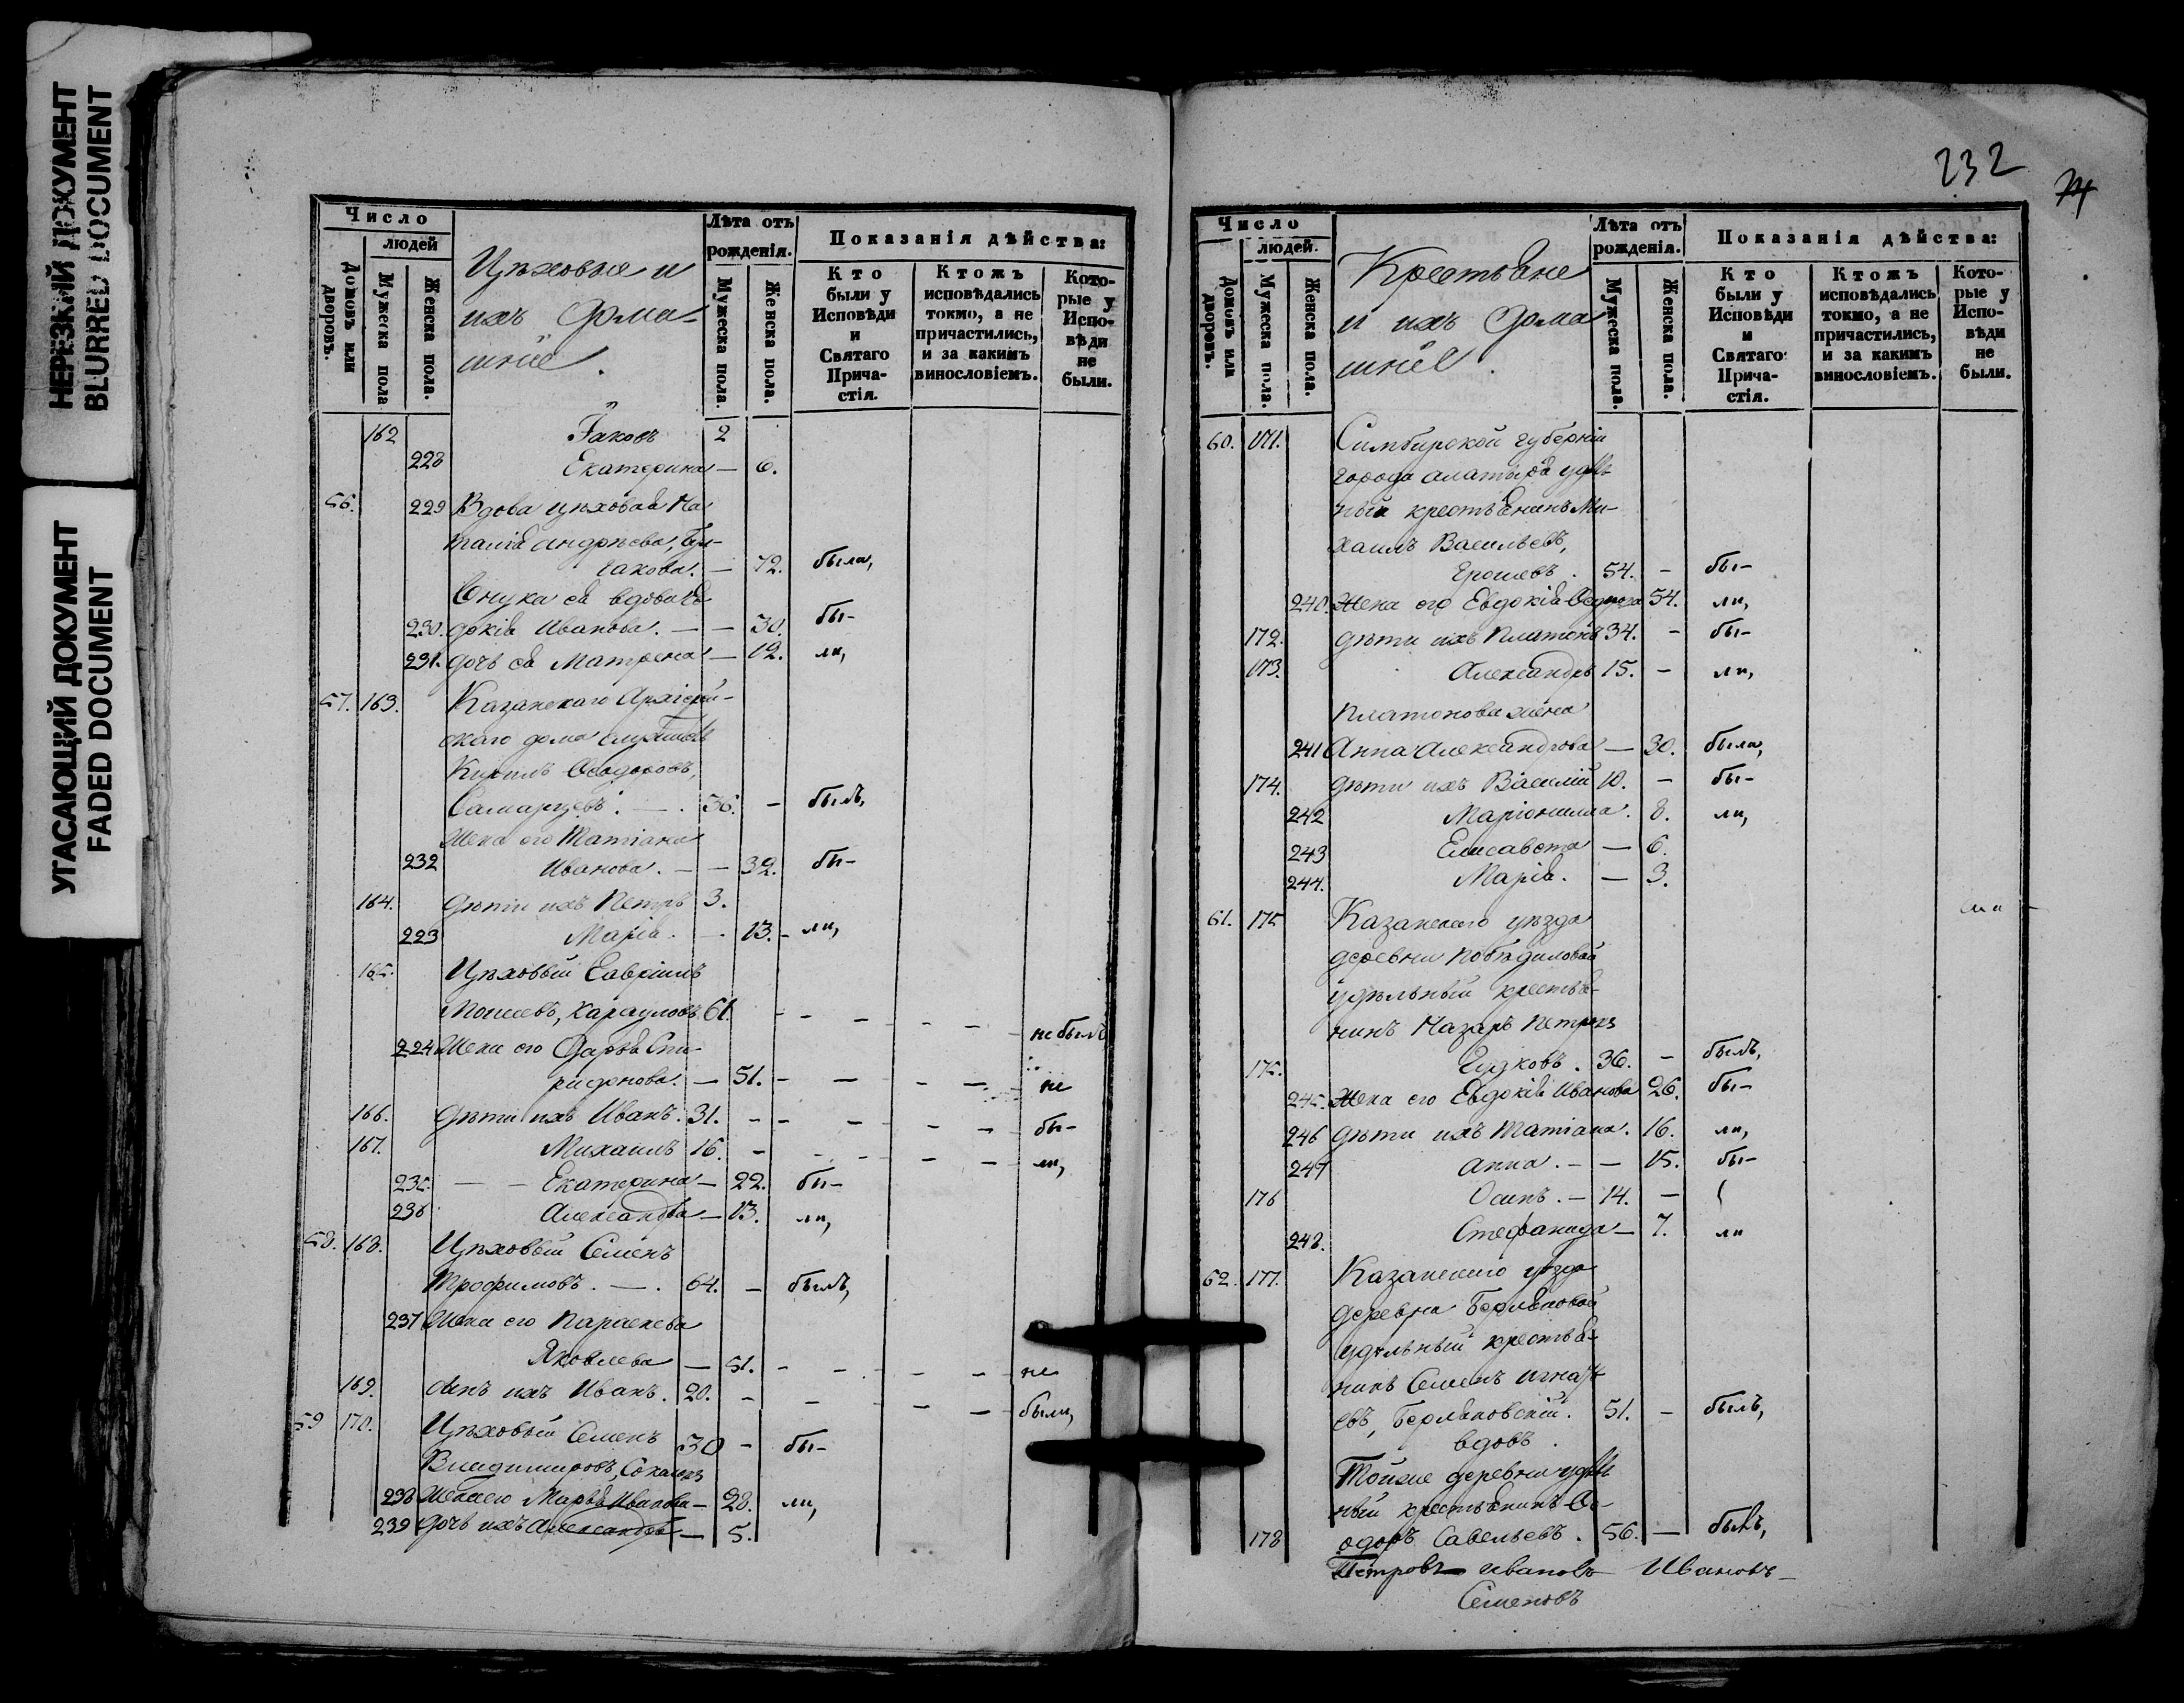 НЕРЕЗКИЙ ДОКУМЕНТ
BLURRED DOCUMENT
УГАСАЮЩИЙ ДОКУМЕНТ
FADED DOCUMENT
Число
людей
Домовъ или дворовъ.
Мужеска пола
Женска пола.
Цѣховые и
ихъ Дома-
шніе.
Лѣта отъ рожденія.
Мужеска пола.
Женска пола.
Показанія дѣйства:
Кто были у Исповѣди и Святаго Прича-стія.
Ктожъ исповѣдались токмо, а не причастились, и за какимъ винословіемъ.
Кото-рые у Испо-вѣди не были.
162 Іаковъ 2
228 Екатерина — 6.
56. 229 Вдова цѣховая На-
талія Андрѣева, Бул-
гакова. — 72. была,
Внука ея вдова Ев-
230. докія Иванова. — — 30. бы-
231. дочь ея Матрена — 12. ли,
57. 163. Казанскаго Архіерей-
скаго дома служитель
Кирилъ Ѳеодоровъ,
Самарцевъ. — 36. — былъ,
Жена его Татіана
232 Иванова. — — 32. бы-
164. Дѣти ихъ Петръ 3.
223 Марія. — 13. - ли,
165. Цѣховый Гавріилъ
Моисеевъ, Карауловъ 61. - - — - — не былъ
224 Жена его Дарья Спи-
ридонова. — 51. - — - — не
166. Дѣти ихъ Иванъ. 31. - - — - — бы-
167. Михаилъ 16. - - - — ли,
235. — — Екатерина — 22. бы-
236 Александра — 13. ли,
58. 168. Цѣховый Семенъ
Трофимовъ. — . 64. — былъ,
237 Жена его Параскева
Яковлева — 51. - - - — не
169. сынъ ихъ Иванъ. 20. - - - — были,
59 170. Цѣховый Семенъ 30 - бы-
Владимировъ,
238 Жена его Марья Иванова — 28. ли,
239 дочь ихъ Александра — 5.
232
74
Число
людей.
Домовъ или дворовъ.
Мужеска пола.
Женска пола.
Крестьяне
и ихъ Дома
шніе.
Лѣта отъ рожденія.
Мужеска пола.
Женска пола.
Показанія дѣйства:
Кто были у Исповѣди и Святаго Прича-стія.
Ктожъ исповѣдались токмо, а не причастились, и за какимъ винословіемъ.
Кото-рые у Испо-вѣди не были.
60. 171. Симбирской губерніи
города Алатыря удѣль
ный крестьянинъ Ми-
хаилъ Васильевъ,
54. - бы-
240. Жена его Евдокія 54. ли,
172. дѣти ихъ Платонъ 34. - бы-
173. Александръ 15. - ли,
Платонова жена
241 Анна Александрова — 30. была,
174. дѣти ихъ Василій 10. - бы-
242 Маріонилла. 8. ли,
243 Елисавета — 6.
244. Марія. — 3.
61. 175 Казанскаго уѣзда
деревни Побѣдиловой
удѣльный крестья-
нинъ Назаръ Петровъ
175. Гудковъ. 36. — былъ,
245. Жена его Евдокія Иванова 26. бы-
246 дѣти ихъ Татіана. 16. ли,
247 Анна. — — 15. бы-
176 Осипъ. — 14. —
248. Стефанида — 7. ли
62. 177. Казанскаго уѣзда
деревни Терликовой
удѣльный крестья-
нинъ Семенъ Игнать
евъ, Терликовскій. 51. - былъ,
вдовъ.
Тойже деревни удѣль
ный крестьянинъ Ѳе-
178 одоръ Савельевъ. 56. — былъ,
Петровъ Ивановъ Ивановъ
Семеновъ